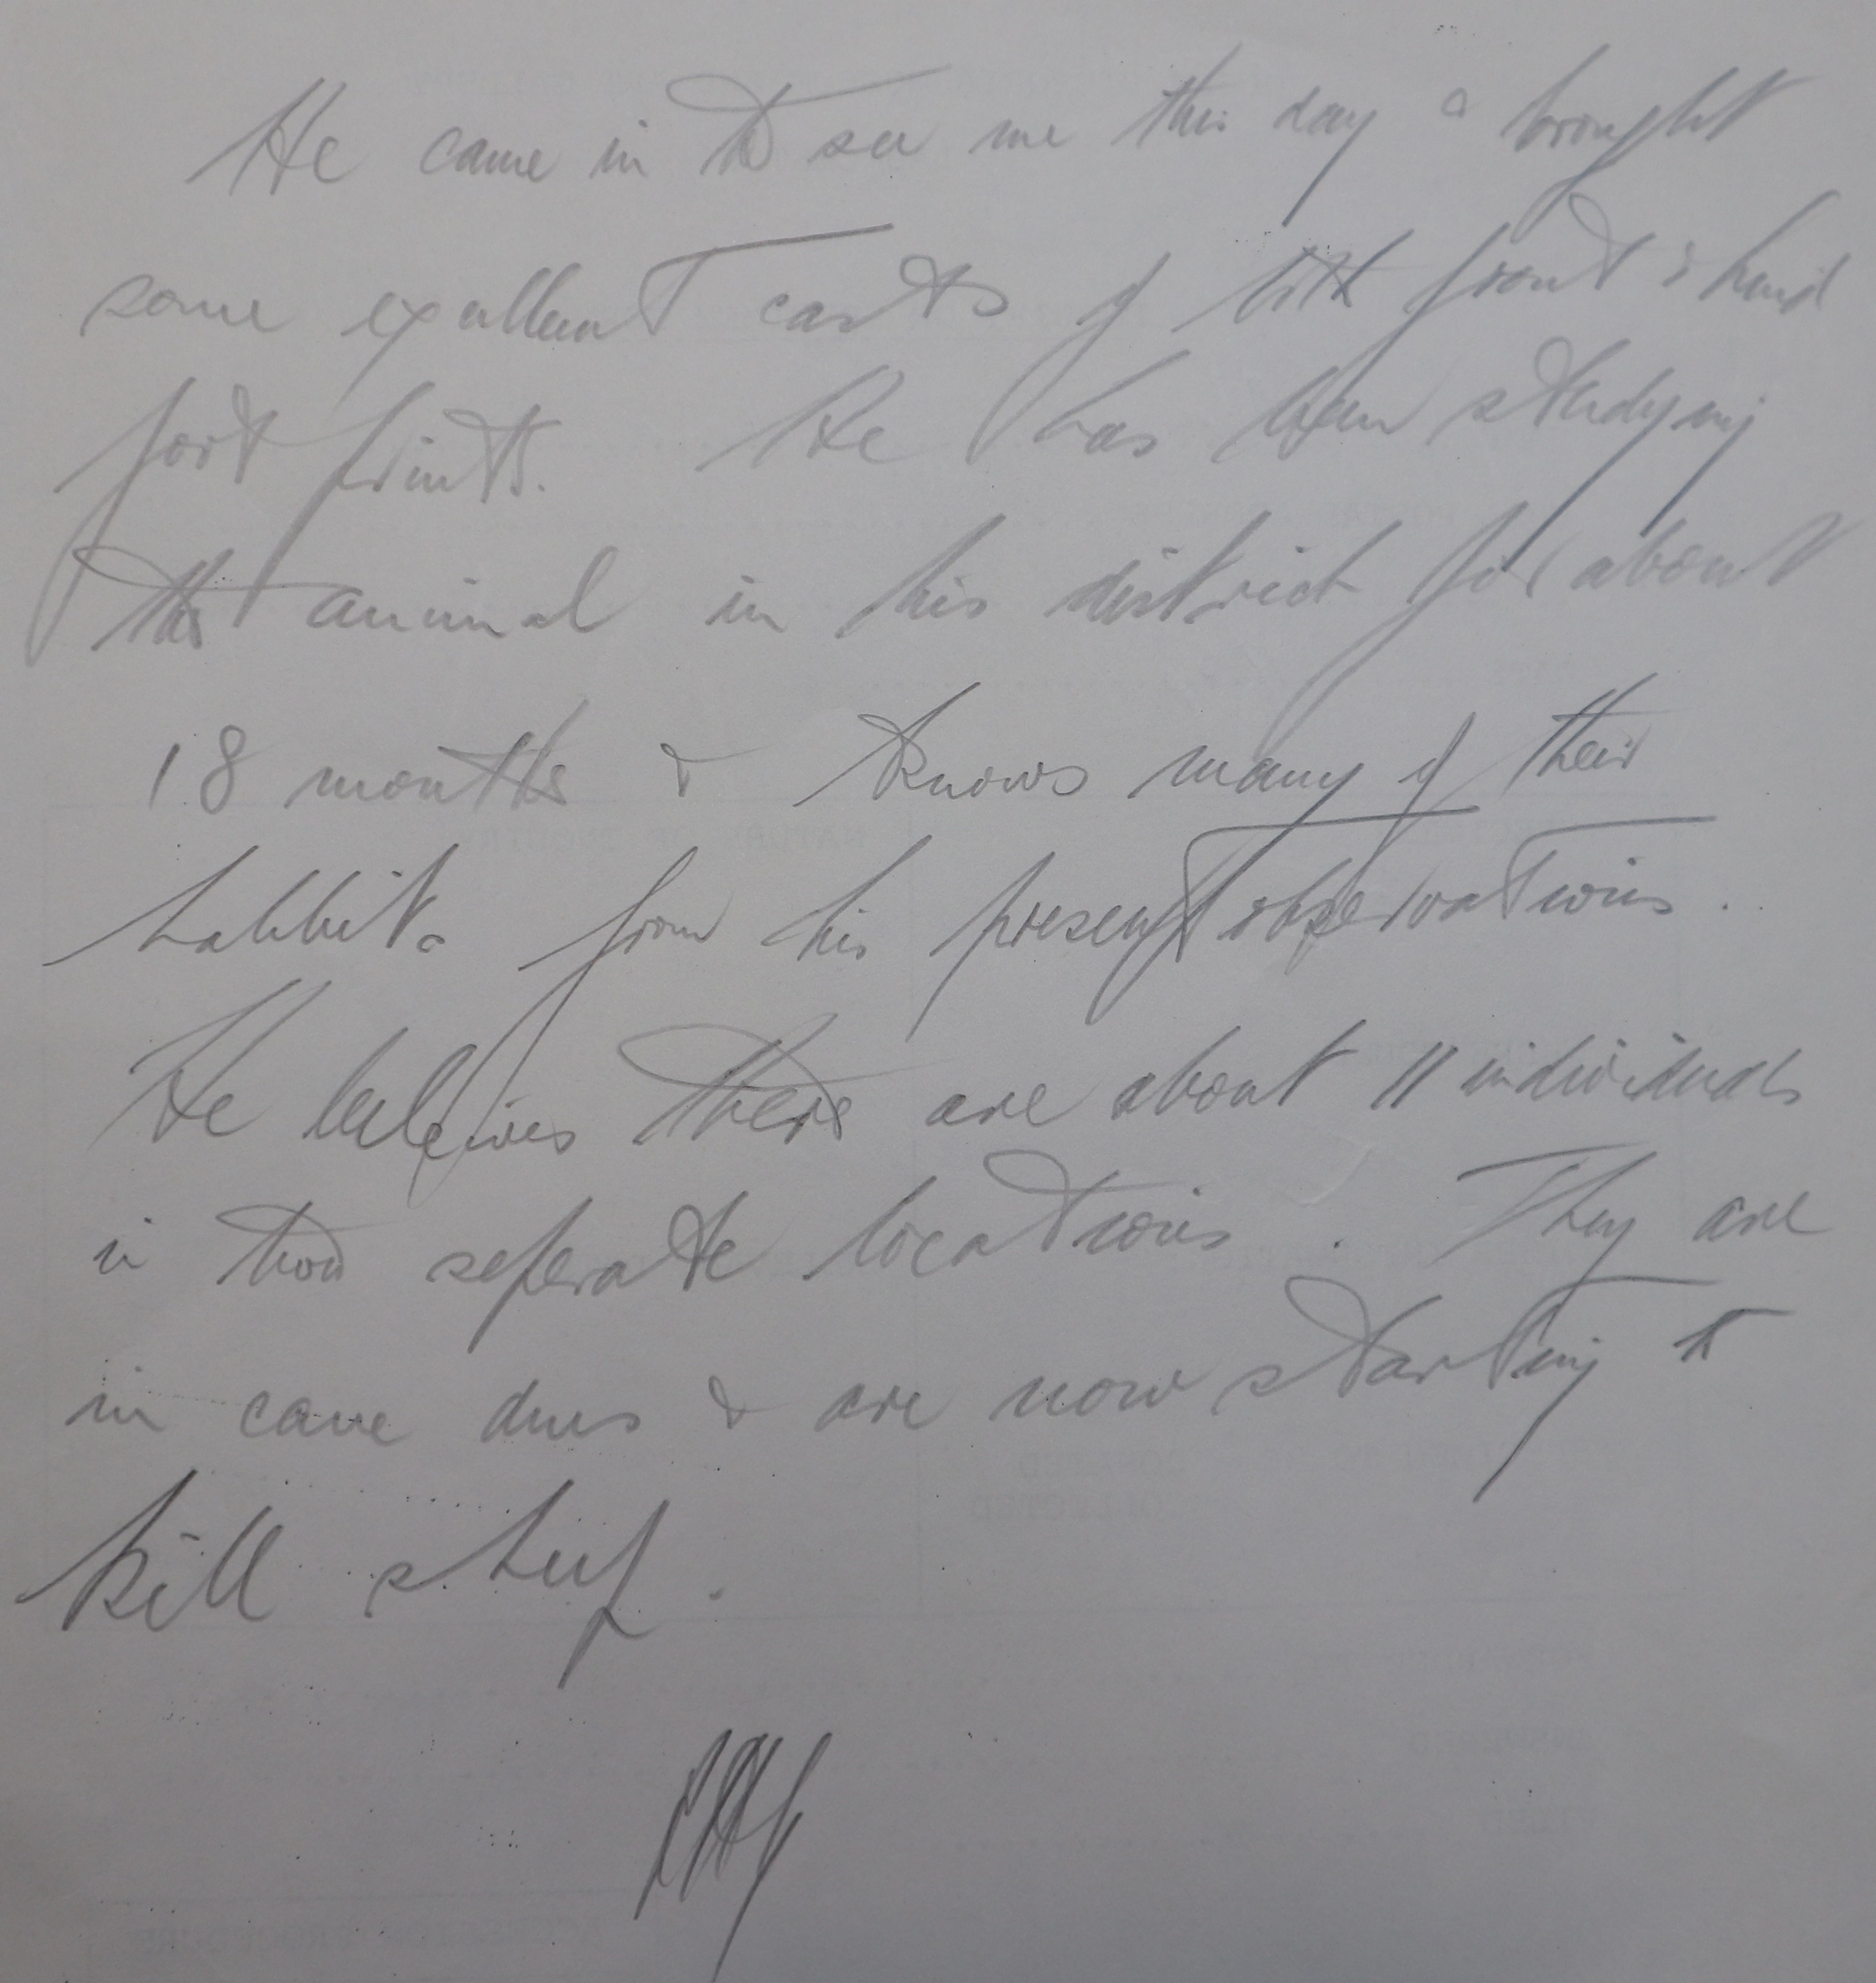 He came in to see me this day & brought
some exallent casts of both front & hind
foot prints. He has been studying
the animal in his district for about
18 months & knows many of their
habbits from his present observations.
He beleives there are about 11 individuals
in two seperate locations. They are
in cave dens & are now starting to
kill sheep.